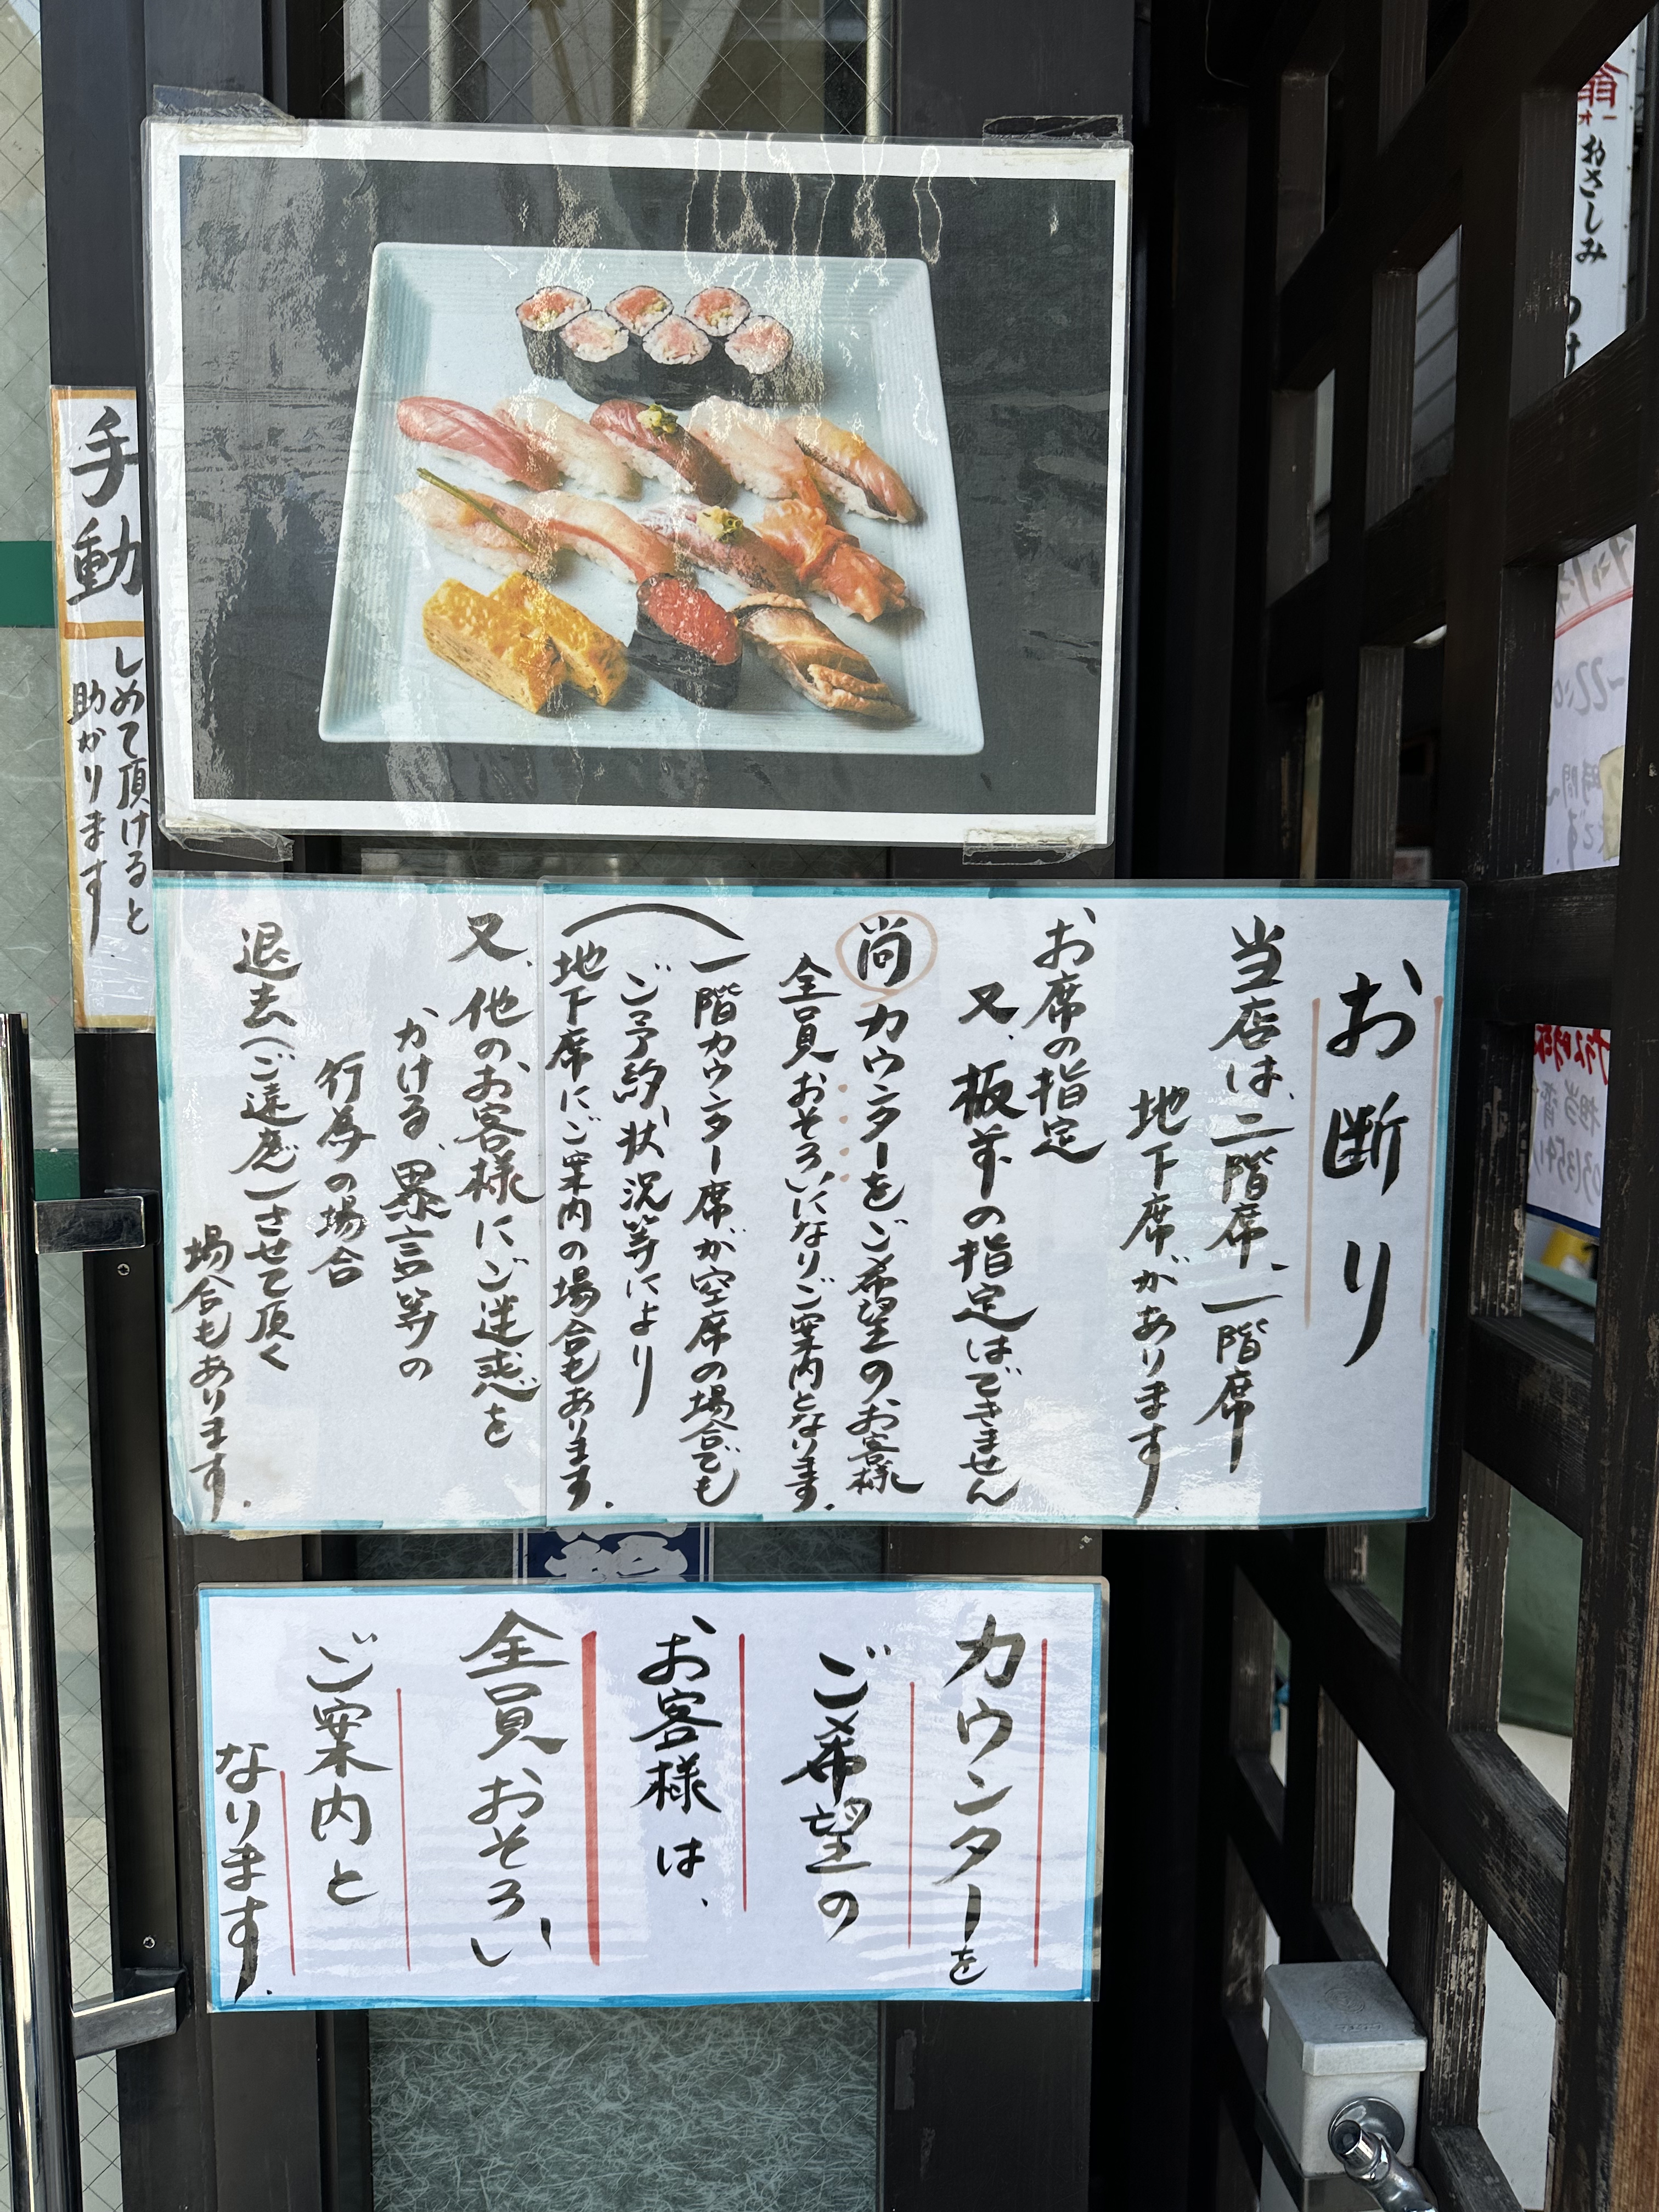 手動
しめて頂けると
助かります
お断り
当店は、二階席、一階席
地下席、があります.
お席の指定
又、板前の指定はできません
尚カウンターをご希望のお客様
全員おそろいになりご案内となります.
(一階カウンター席が空席の場合でも
ご予約、状況等により
地下席にご案内の場合もあります.
又、他の、お客様にご迷惑を
かける、暴言等の
行為の場合
退去(ご遠慮)させて頂く
場合もあります.
カウンターを
ご希望の
お客様は、
全員おそろい
ご案内と
なります.
おさしみ